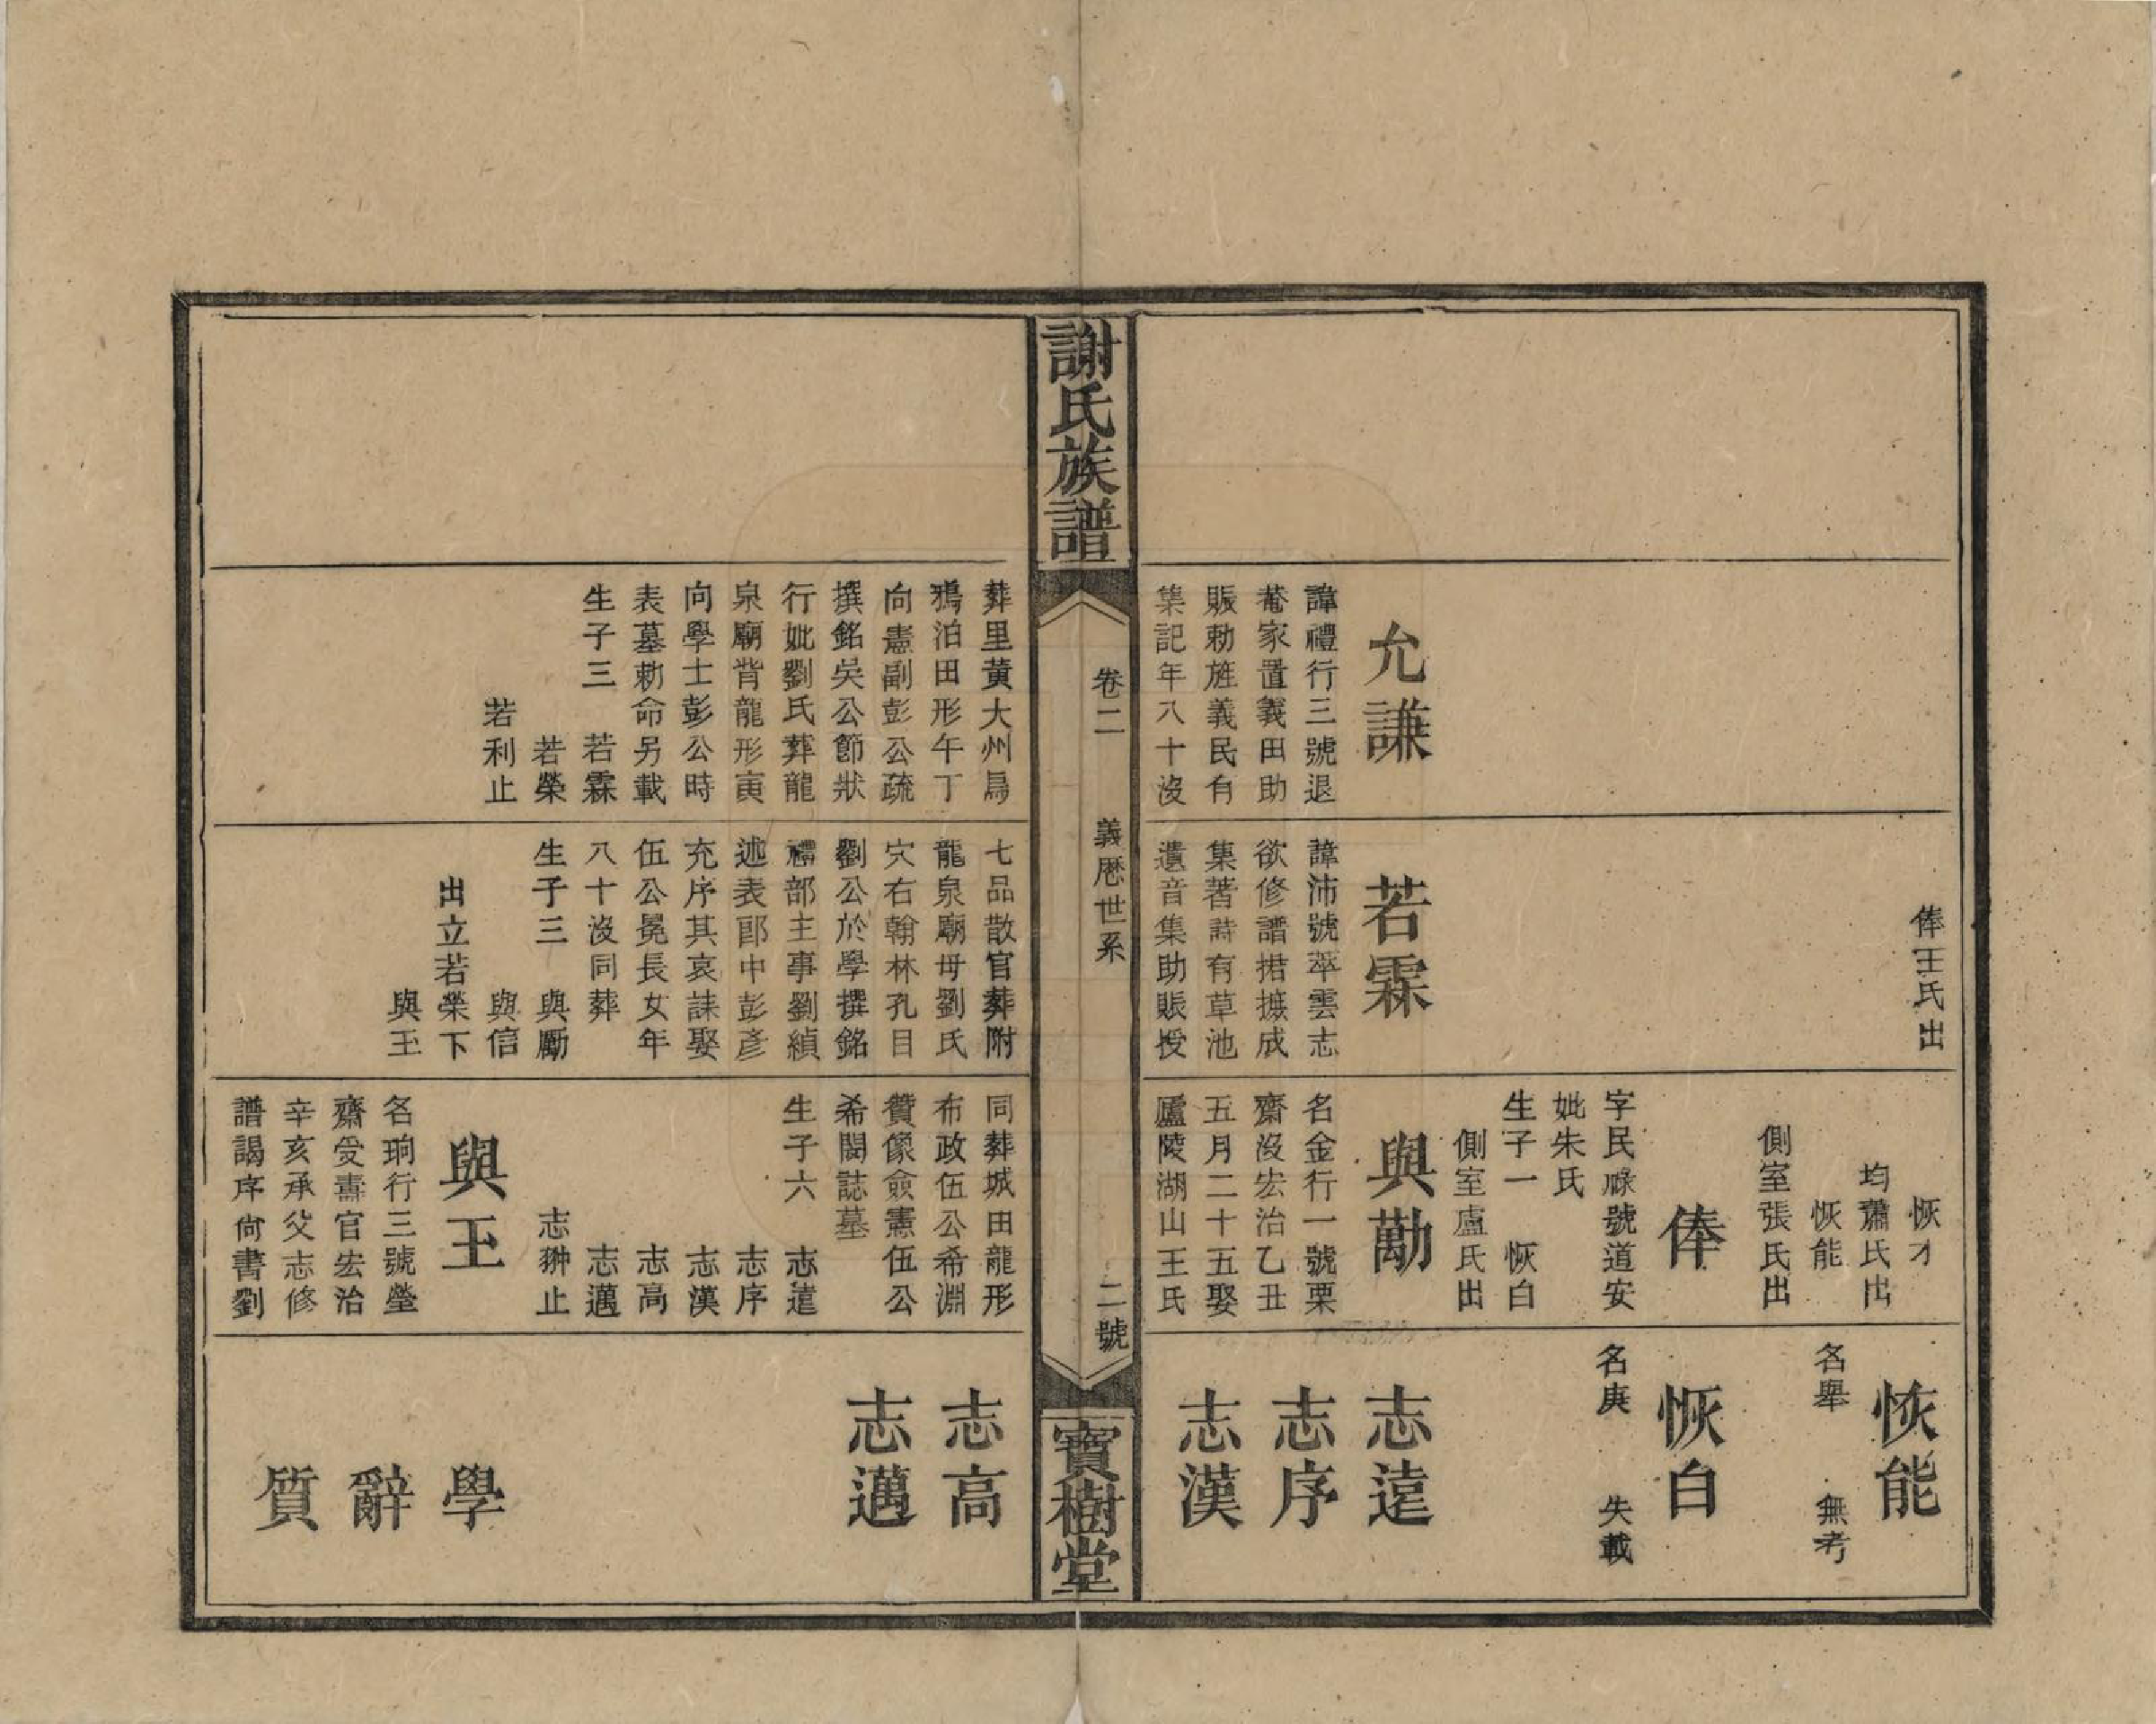 允謙
諱禮行三號退
菴家置義田助
賑勅旌義民有
集記年八十沒
俸王氏出
若霖
諱沛號萃雲志
欲修譜捃摭成
集著詩有草池
遺音集助賑授
恢才
均蕭氏出
恢能
側室張氏出
俸
字民祿號道安
妣朱氏
生子一 恢白
側室盧氏出
與勱
名金行一號栗
齋沒宏治乙丑
五月二十五娶
廬陵湖山王氏
恢能
名舉 無考
恢白
名庚 失載
志遠
志序
志漢
謝氏族譜
卷二 義歷世系 二號
寶樹堂
葬里黃大州烏
鴉泊田形午丁
向憲副彭公疏
撰銘吳公節狀
行妣劉氏葬龍
泉廟背龍形寅
向學士彭公時
表墓勅命另載
生子三 若霖
若榮
若利止
七品散官葬附
龍泉廟毋劉氏
穴右翰林孔目
劉公於學撰銘
禮部主事劉縝
述表郎中彭彥
充序其哀誄娶
伍公冕長女年
八十沒同葬
生子三 與勵
與信
出立若榮下
與王
同葬城田龍形
布政伍公希淵
贊像僉憲伍公
希閔誌墓
生子六 志遠
志序
志漢
志高
志邁
志翀止
與王
名珦行三號瑩
齋受壽官宏治
辛亥承父志修
譜謁序尙書劉
志高
志邁
學
辭
質